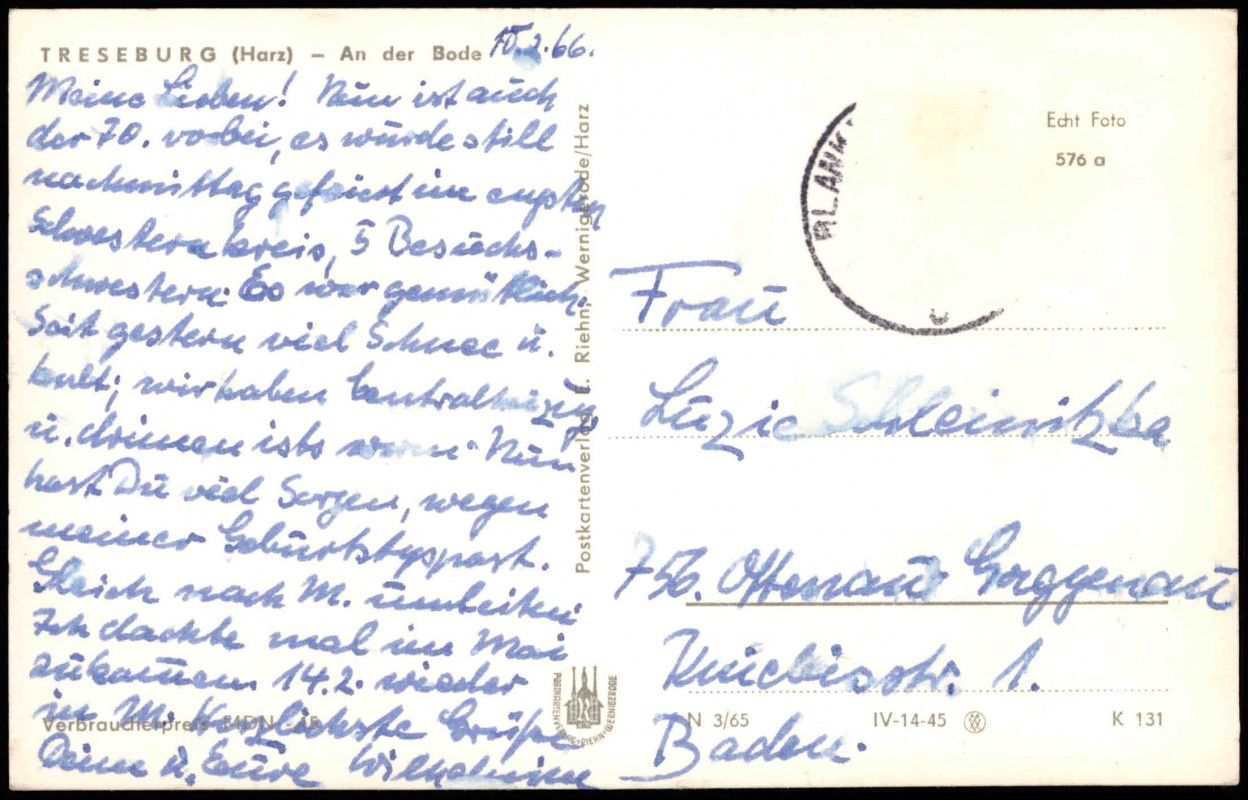 TRESEBURG (Harz) – An der Bode
10.2.66.
Meine Lieben! Nun ist auch
der 70. vorbei, es wurde still
nachmittag gefeiert im engsten
Schwesternkreis, 5 Besuchs-
schwestern. Es war gemütlich.
Seit gestern viel Schnee u.
kalt; wir haben Centralheizung
u. drinnen ists warm. Nun
hast Du viel Sorgen, wegen
meiner Geburtstagspost.
Gleich nach M. umleiten
Ich dachte mal im Mai
zukommen. 14.2. wieder
in M. Herzlichste Grüße
Deine u. Eure Wilhelmine
Verbraucherpreis MDN -,15
Postkartenverlag E. Riehn, Wernigerode/Harz
POSTKARTENVERLAG·RIEHN·WERNIGERODE
BLANK
Echt Foto
576 a
Frau
Luzie Schleinitzka
756. Ottenau Gaggenau
Kniebisstr. 1.
Baden.
N 3/65 IV-14-45 K 131